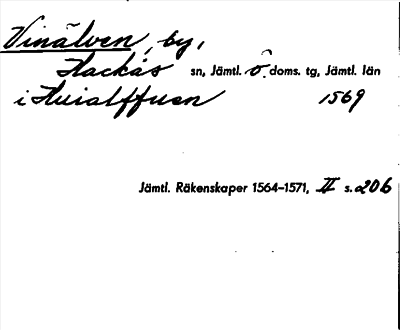 Vinälven, by,
Hackås sn, Jämtl. Ö. doms. tg, Jämtl. län
i Huialffuen 1569
Jämtl. Räkenskaper 1564–1571, II s. 206